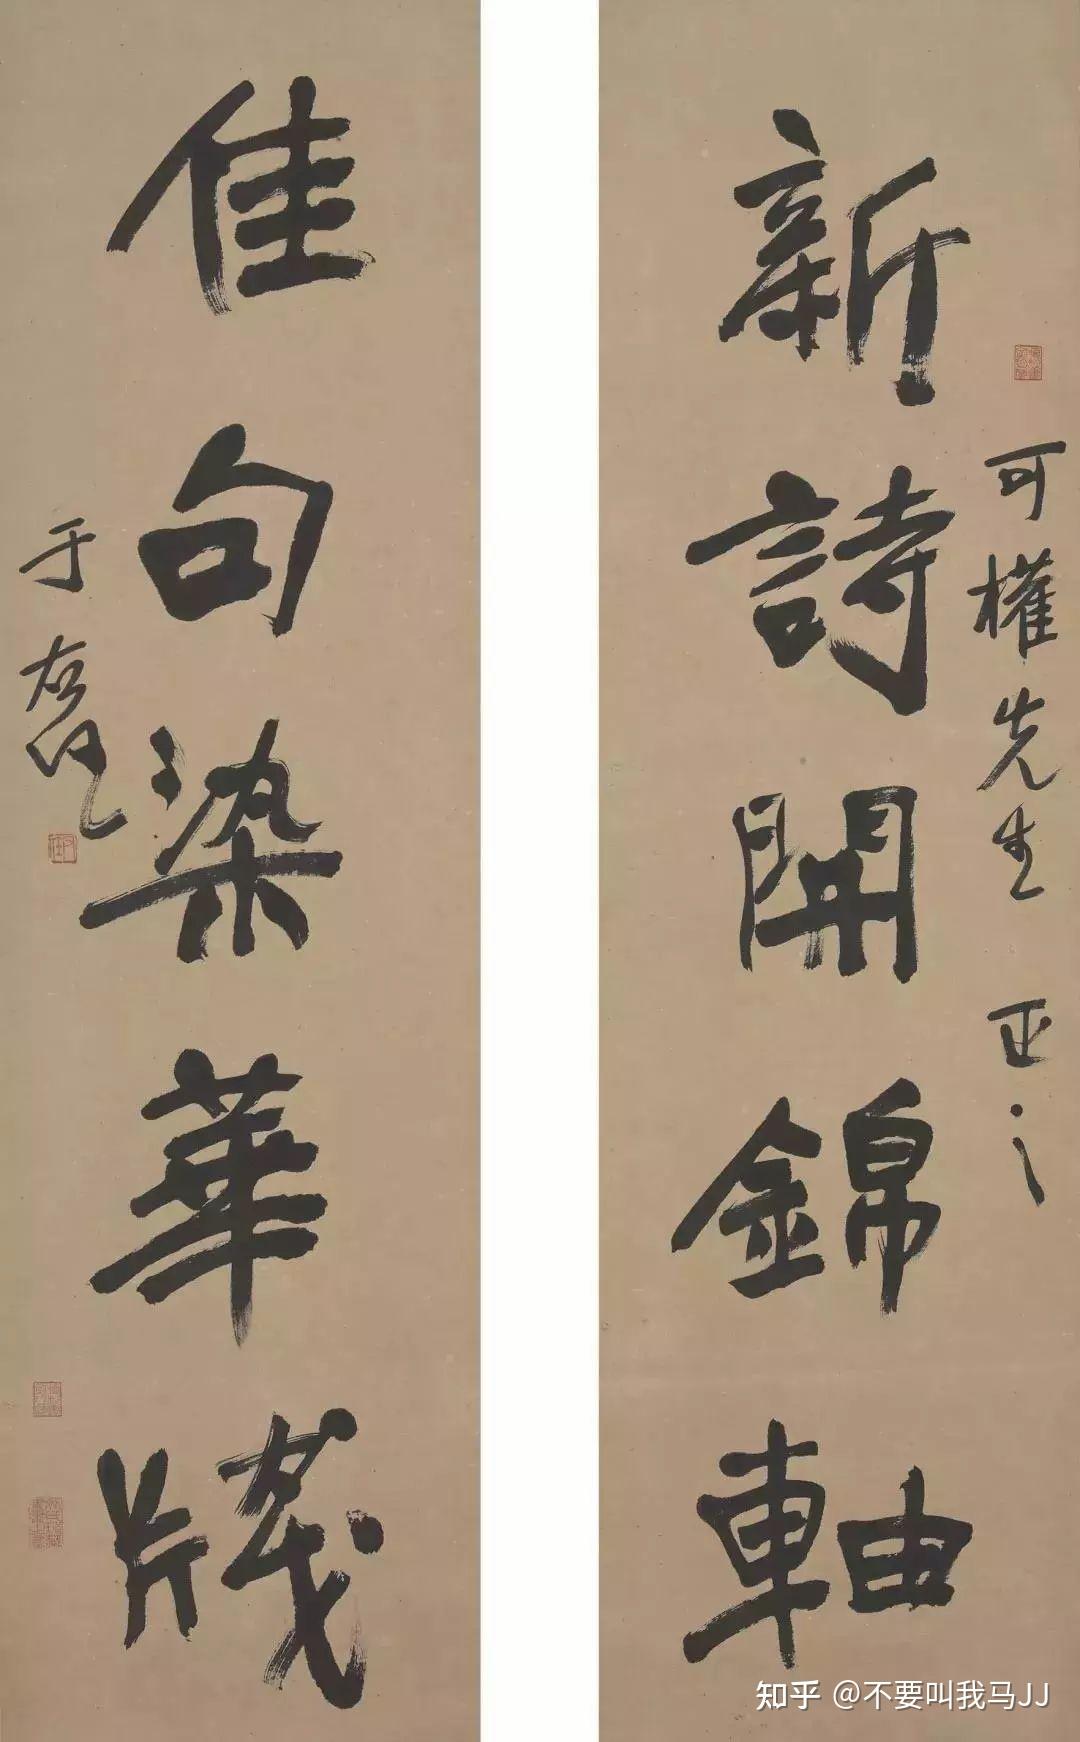 新詩開錦軸
可權先生 正之
佳句染華牋
于右任
知乎 @不要叫我马JJ